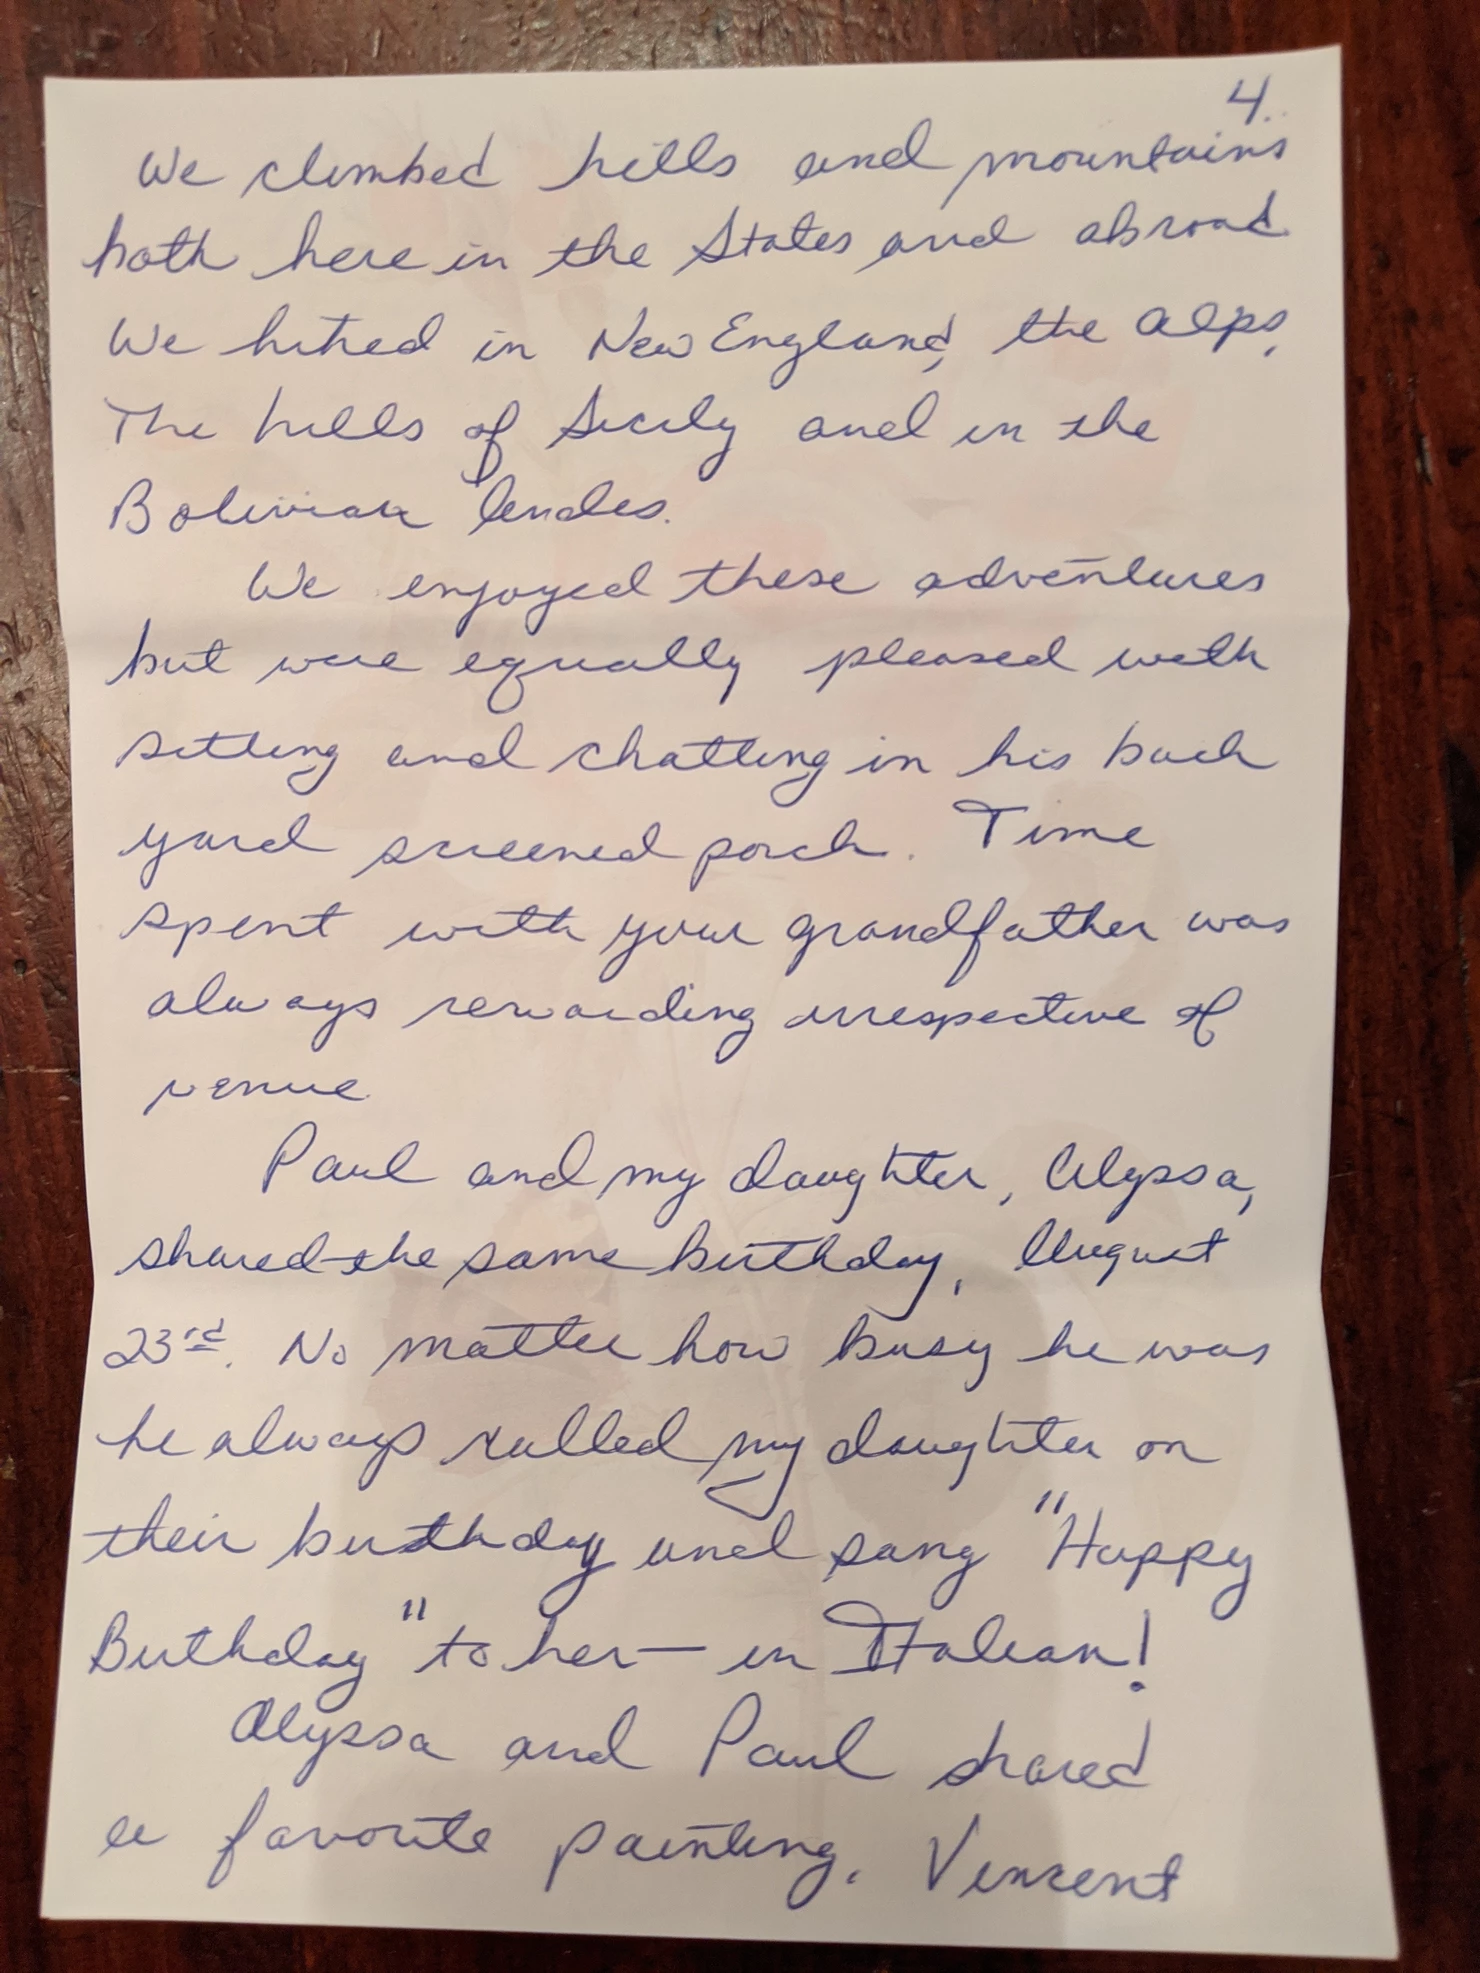 4.
We climbed hills and mountains
both here in the States and abroad
We hiked in New England, the Alps,
The hills of Sicily and in the
Bolivian Andes.
We enjoyed these adventures
but were equally pleased with
sitting and chatting in his back
yard screened porch. Time
spent with your grandfather was
always rewarding irrespective of
venue.
Paul and my daughter, Alyssa,
shared the same birthday, August
23rd. No matter how busy he was
he always called my daughter on
their birthday and sang "Happy
Birthday" to her — in Italian!
Alyssa and Paul shared
a favorite painting, Vincent